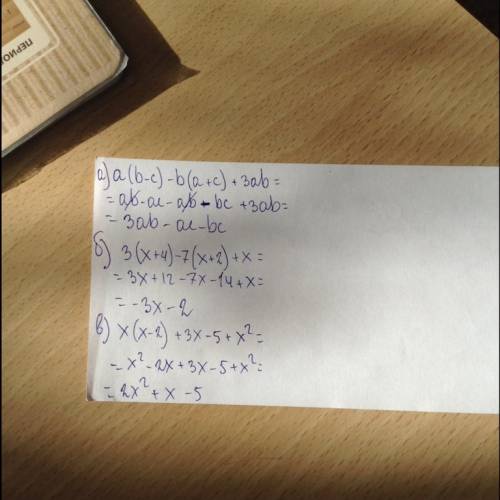 ПЕРИО
а) a(b-c)-b(a+c)+3ab=
=ab-ac-ab-bc+3ab=
=3ab-ac-bc
б) 3(x+4)-7(x+2)+x=
=3x+12-7x-14+x=
=-3x-2
в) x(x-2)+3x-5+x²=
=x²-2x+3x-5+x²=
=2x²+x-5